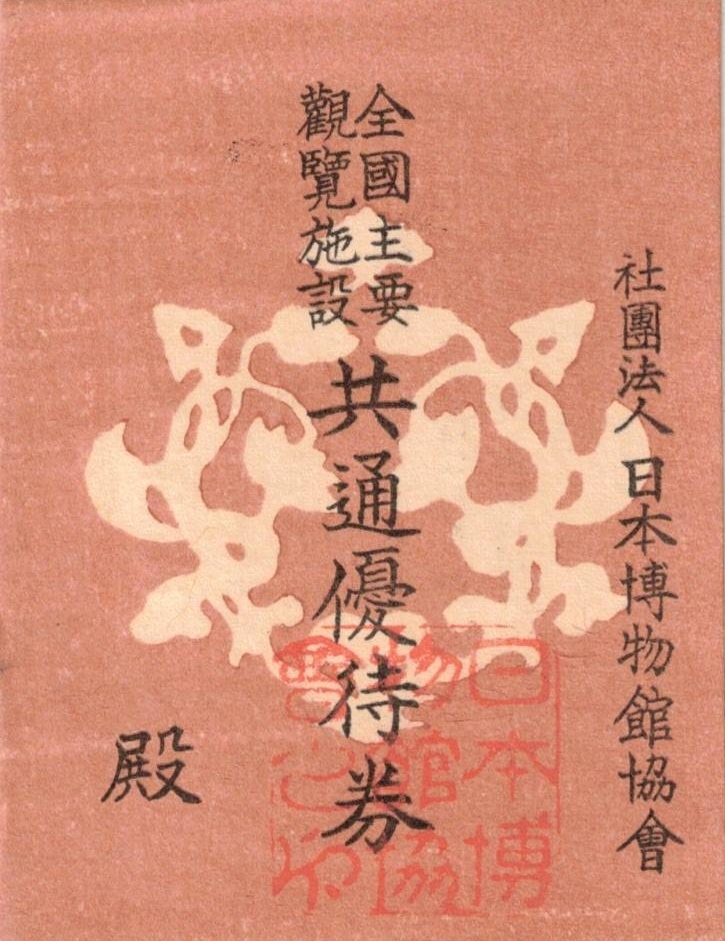 社團法人日本博物館協會
全國主要
觀覽施設
共通優待券
殿
日本博
物館協
會之印